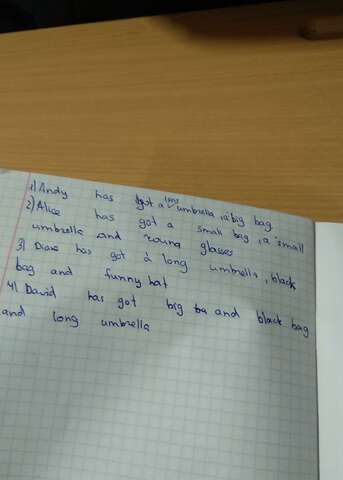 1) Andy has got a long umbrella, a big bag
2) Alice has got a small bag, a small
umbrella and round glasses
3) Diane has got a long umbrella, black
bag and funny hat
4) David has got big ba and black bag
and long umbrella